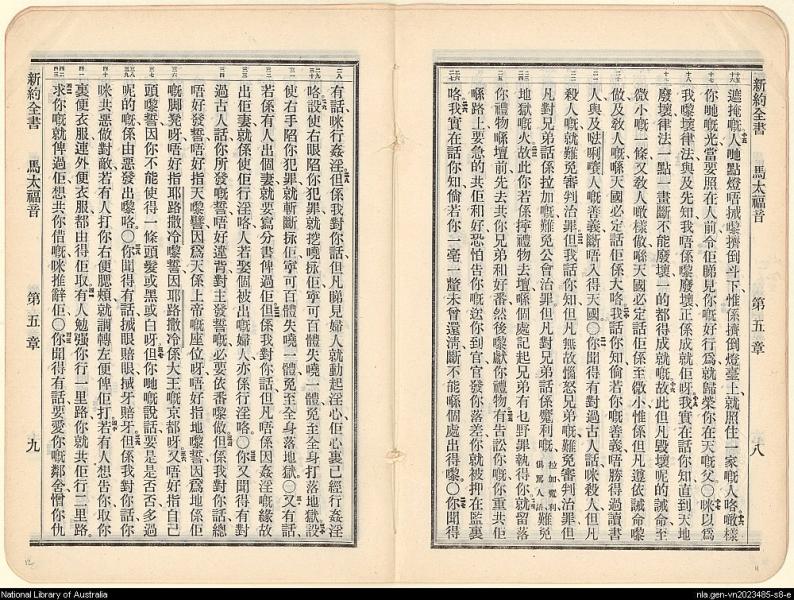 新約全書 馬太福音 第五章 八
遮掩嘅人哋點燈唔搣嚟擠倒斗下惟係擠倒燈臺上就照住一家嘅人咯噉樣
你哋嘅光當要照在人前令佢睇見你嘅好行為就歸榮你在天嘅父〇咪以為
我嚟壞律法與及先知我唔係嚟廢壞正係成就佢呀我實在話你知直到天地
廢壞律法一點一畫斷不能廢壞一的都得成就嘅故此但凡毀壞呢的誡命至
微小嘅一條又敎人噉樣做喺天國必定話佢係至微小嘅惟係但凡遵依誡命嚟
做及敎人嘅喺天國必定話佢係大咯我話你知倘若你嘅善義唔勝得過讀書
人與及𠵽唎㘔人嘅善義斷唔入得天國〇你聞得有對過古人話咪殺人但凡
殺人嘅就難免審判治罪但我話你知但凡無故惱怒兄弟嘅難免審判治罪但
凡對兄弟話係拉加嘅難免公會治罪但凡對兄弟話係魔利嘅 拉加魔利俱罵人話 難免
地獄嘅火故此你若係擰禮物去壇喺個處記起兄弟有乜野㧬執得你就留落
你禮物喺壇前先去共你兄弟相和好番然後嚟獻你禮物有告訟你嘅你重共佢
喺路上要急的共佢和好恐怕告你嘅送你到官官發你落差你就被押在監裏
咯我實在話你知倘若你一毫一釐未曾還清斷不能喺個處出得嚟〇你聞得
有話咪行姦淫但係我對你話但凡睇見婦人就動起淫心佢心裏已經行姦淫
咯設使右眼陷你犯罪就挖嘵㧒佢寧可百體失嘵一體免至全身打落地獄設
使右手陷你犯罪就斬斷㧒佢寧可百體失嘵一體免至全身落地獄〇又有話
若係有人出個妻就要寫分書俾過佢但係我對你話但凡唔係因姦淫嘅緣故
出佢妻就係使佢行淫咯人若娶個被出嘅婦人亦係行淫咯〇你又聞得有對
過古人話你所發嘅誓唔好違背對主發誓嘅必要依番嚟做但係我對你話總
唔好發誓唔好指天嚟誓因為天係上帝嘅座位呀唔好指地嚟誓因為地係佢
嘅脚凳呀唔好指耶路撒冷嚟誓因耶路撒冷係大王嘅京都呀又唔好指自己
頭嚟誓因你不能使得一條頭髮或黑或白呀但你哋嘅說話要是是否否多過
呢的嘅係由惡發出嚟咯〇你聞得有話搣眼賠眼搣牙賠牙但係我對你話你
咪共惡做對敵若有人打你右便腮頰就調轉左便俾佢打若有人想告你取你
裏便衣服連外便衣服都由得佢取有人勉强你行一里路你就共佢行二里路
求你嘅就俾過佢想共你借嘅咪推辭佢〇你聞得有話要愛你嘅鄰舍憎你仇
新約全書 馬太福音 第五章 九
National Library of Australia
nla.gen-vn2023485-s8-e